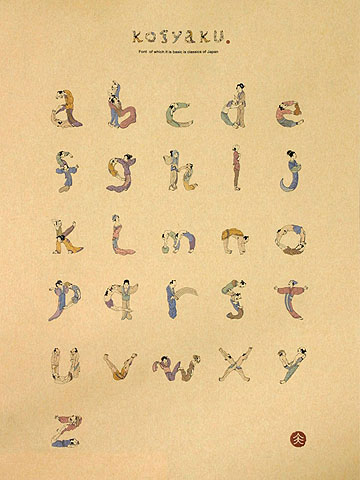 kosyaku.
Font of which it is basic is classics of Japan
a b c d e
f g h i j
k l m n o
p q r s t
u v w x y
z